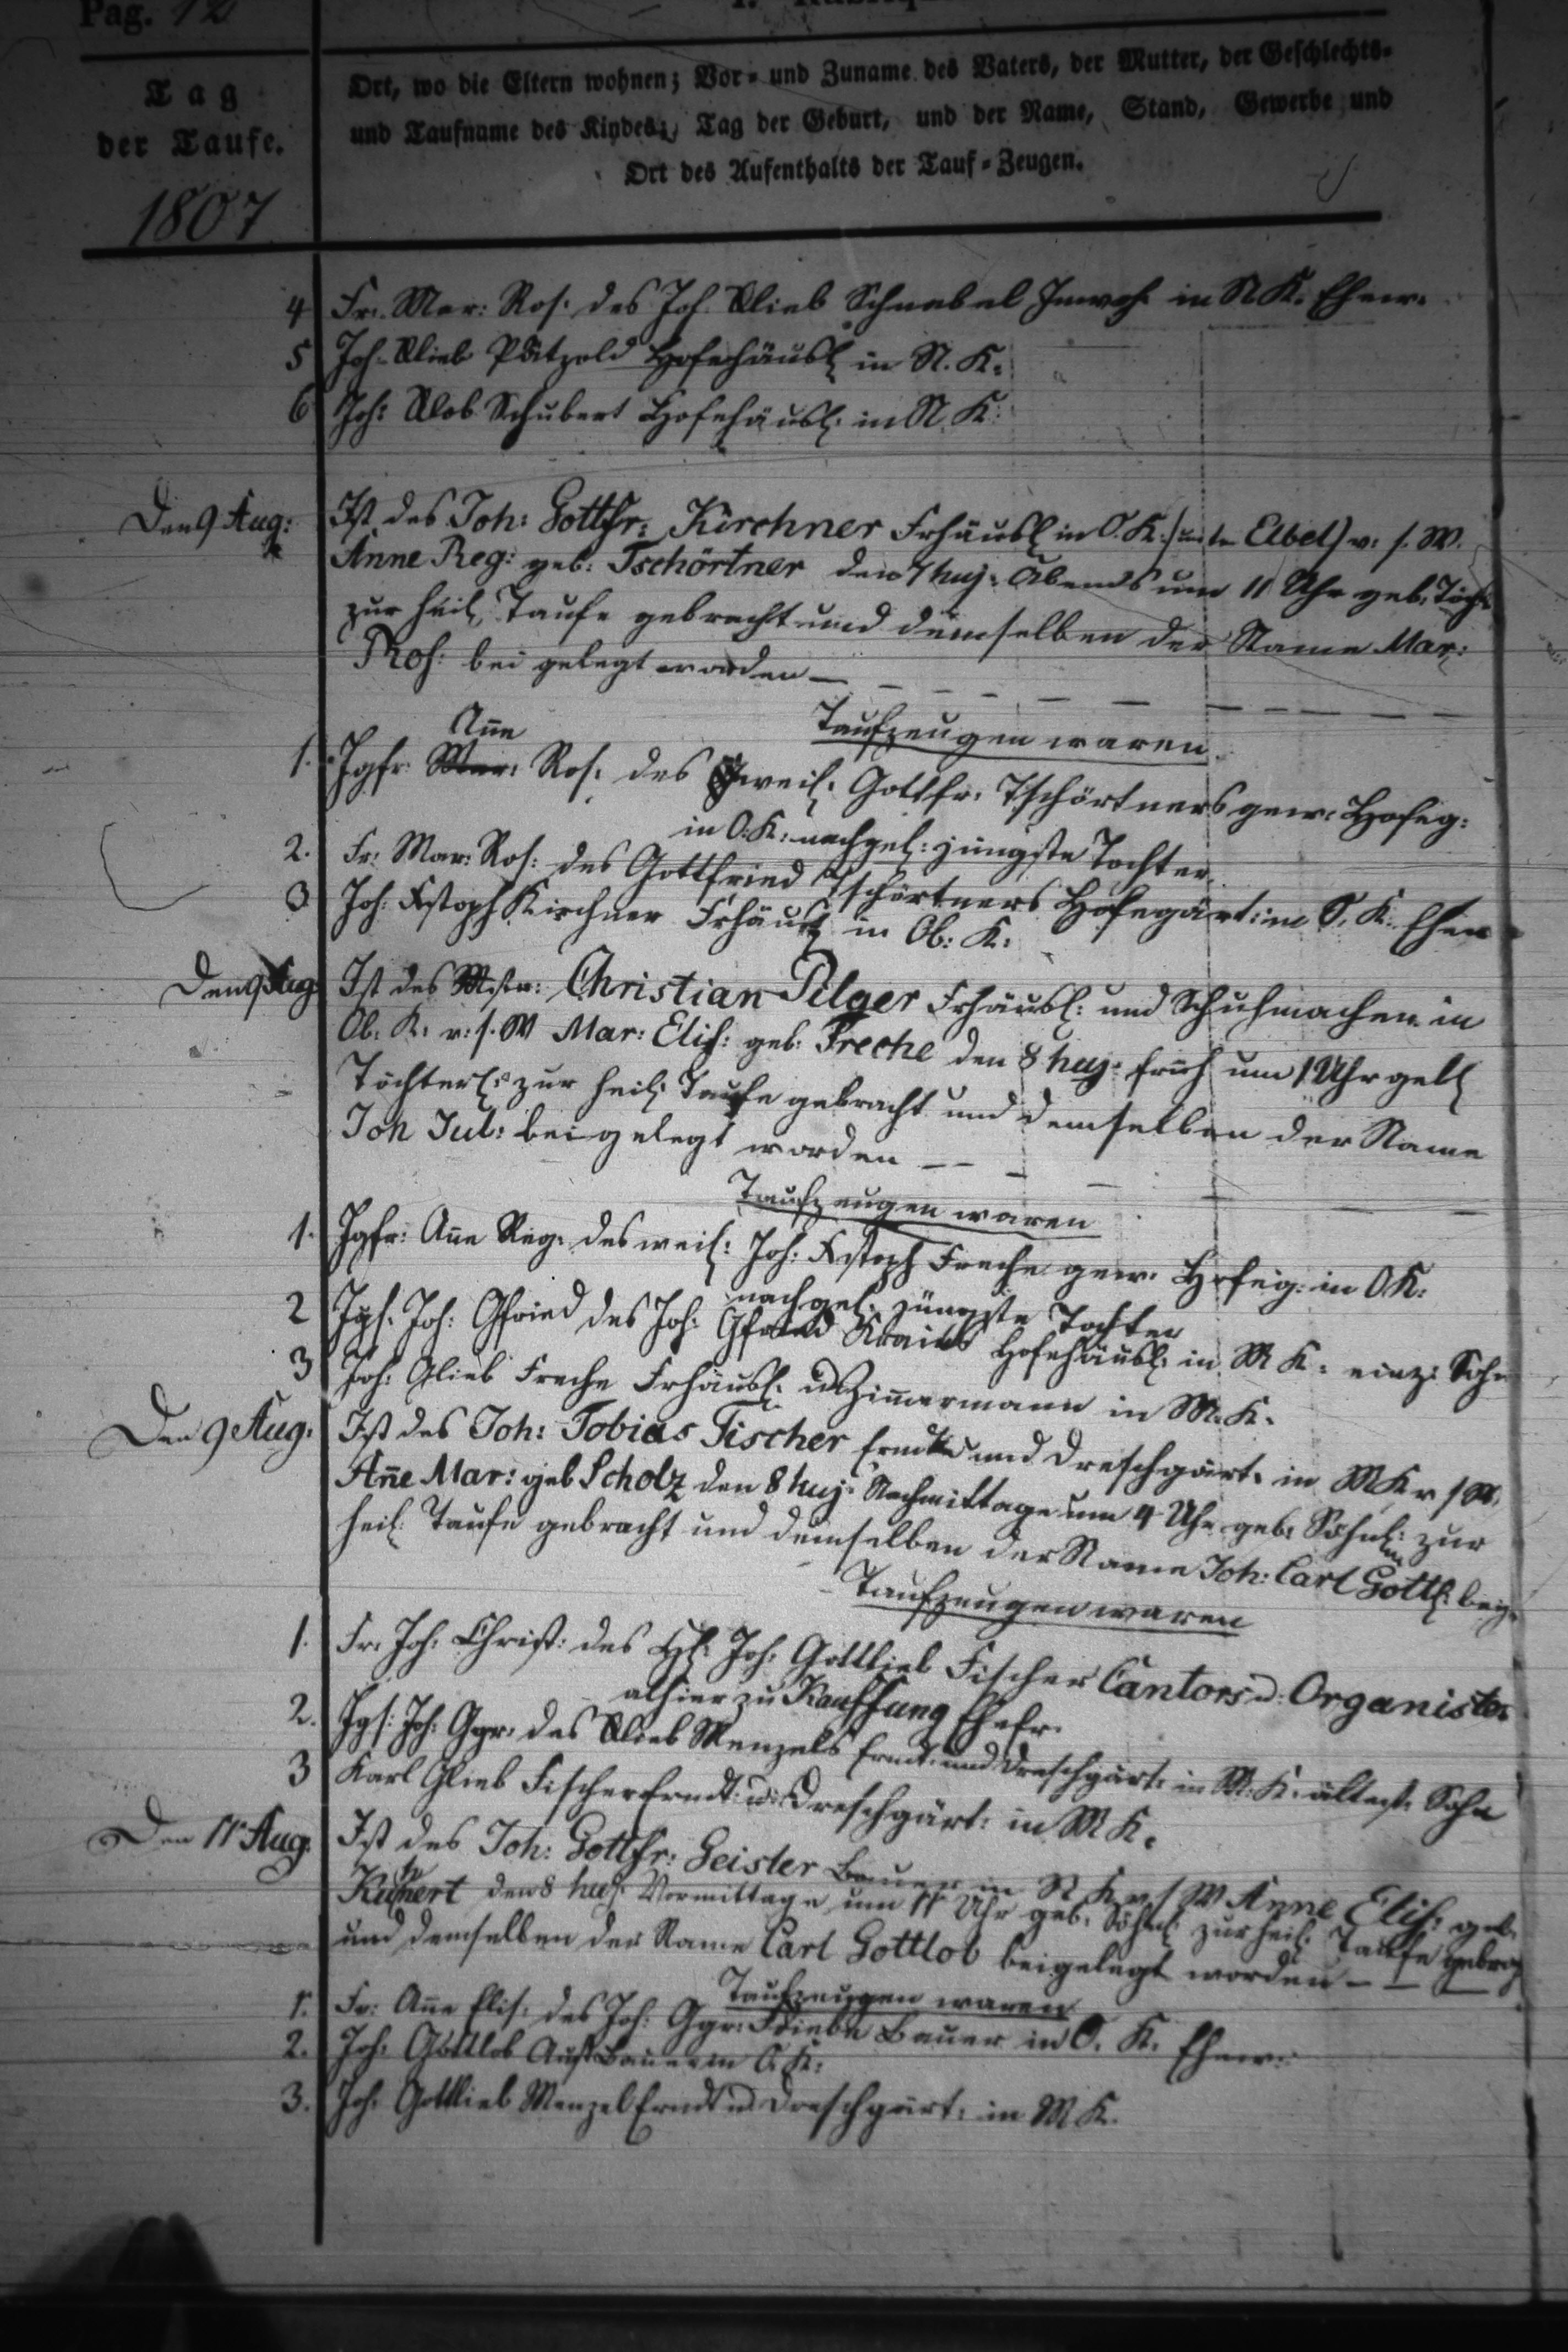 Pag. 12
Tag
der Taufe.
1807
Ort, wo die Eltern wohnen; Vor- und Zuname des Vaters, der Mutter, der Geschlechts-
und Taufname des Kindes; Tag der Geburt, und der Name, Stand, Gewerbe und
Ort des Aufenthalts der Tauf-Zeugen.
4 Fr. Mar: Ros: des Joh. Glieb Schnabel Inwoh. in N K. Ehew.
5 Joh. Glieb Pätzold Hofehäusl in N. K.
6 Joh: Glob Schubert Hofehäusl: in N K:
Den 9 Aug: Ist des Joh: Gottfr: Kirchner Frhäusl in O. K. v: s. W.
Anne Reg: geb: Tschörtner den 7 huj: Abends um 11 Uhr geb. Töch
zur heil. Taufe gebracht und demselben der Name Mar:
Ros: bei gelegt worden
Taufzeugen waren
Ane
1. Jgfr: Mar: Ros: des weil: Gottfr: Tschörtners gew: Hofeg:
in O. K: nachgel: jüngste Tochter.
2. Fr: Mar: Ros: des Gottfried Tschörtners Hofegärt: in O. K. Ehew
3 Joh: Xstoph Kirchner Frhäusl in Ob: K:
Den 9 Aug: Ist des Mstr: Christian Pilger Frhäusl: und Schuhmacher in
Ob: K: v: s. W Mar: Elis: geb: Freche den 8 huj: früh um 1 Uhr geb
Töchterl: zur heil: Taufe gebracht und demselben der Name
Joh Jul: bei gelegt worden
Taufzeugen waren
1. Jgfr: Ane Reg: des weil: Joh: Xstoph Freche gew: Hofeg: in O K:
nachgel: jüngste Tochter
2 Jgs: Joh: Gfried des Joh: Gfried Hofehäusl: in M K: einz: Sohn
3 Joh: Glieb Freche Frhäusl: u Zimmermann in M. K.
Den 9 Aug: Ist des Joh: Tobias Fischer Erndt und Dreschgärt: in M K v s W.
Anne Mar: geb Scholz den 8 huj: Nachmittage um 4 Uhr geb: Söhnl: zur
heil: Taufe gebracht und demselben der Name Joh: Carl Gottl: beig.
Taufzeugen waren
1. Fr: Joh: Christ: des H: Joh: Gottlieb Fischer Cantors u: Organisten
alhier zu Kauffung Ehefr.
2. Jgs: Joh: Ggr: des Glieb Menzels Erndt: und Dreschgärt: in M: K: ältest: Sohn
3 Karl Glieb Fischer Erndt: u: Dreschgärt: in M K.
Den 11 Aug: Ist des Joh: Gottfr: Geisler Bauer in N K v s W Anne Elis: geb.
den 8 huj: Vormittage um 11 Uhr geb: Söhnl: zur heil: Taufe gebrach
und demselben der Name Carl Gottlob beigelegt worden
Taufzeugen waren
1. Fr: Ane Elis: des Joh: Ggr: Friebe Bauer in O. K. Ehew:
2. Joh: Gottlob Aust Bauer in O. K:
3. Joh: Gottlieb Menzel Erndt u Dreschgärt: in M K.